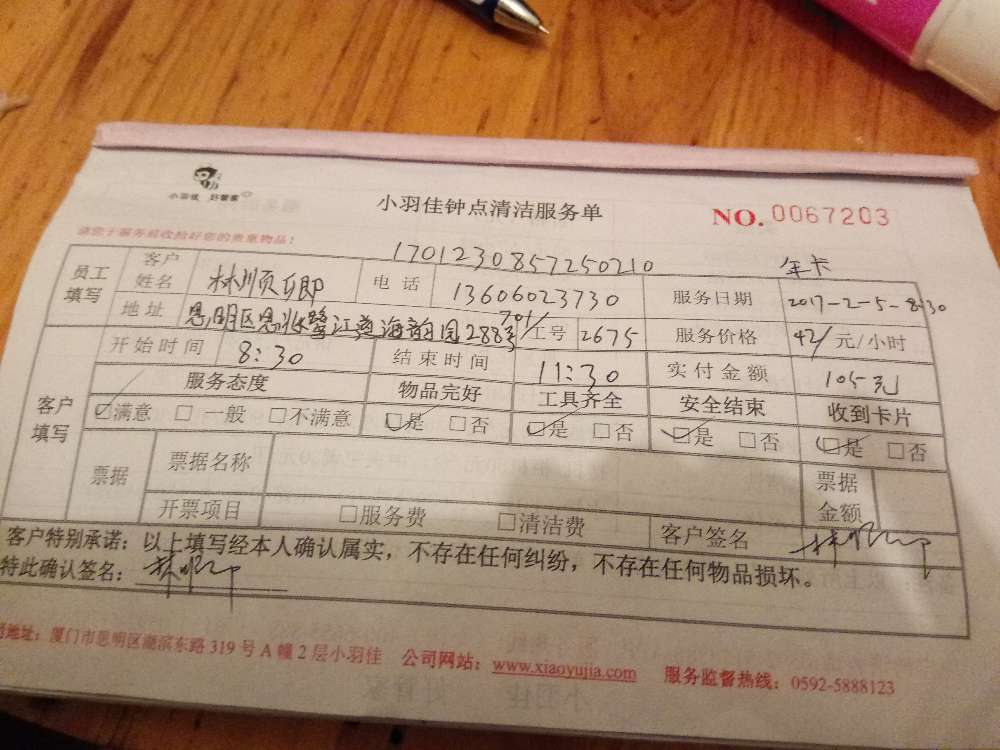 小羽佳 好管家
小羽佳钟点清洁服务单
NO. 0067203
请您于服务前收拾好您的贵重物品！
1701230857250210 年卡
员工填写 客户姓名 林顺郎 电话 13606023730 服务日期 2017-2-5-8:30
地址 思明区 鹭江道海韵园288号 701/ 工号 2675 服务价格 42/ 元/小时
开始时间 8:30 结束时间 11:30 实付金额 105元
客户填写 服务态度 物品完好 工具齐全 安全结束 收到卡片
☑满意 □一般 □不满意 ☑是 □否 ☑是 □否 ☑是 □否 ☑是 □否
票据 票据名称 票据金额
开票项目 □服务费 □清洁费 客户签名 林顺郎
客户特别承诺：以上填写经本人确认属实，不存在任何纠纷，不存在任何物品损坏。
特此确认签名：林顺郎
地址：厦门市思明区湖滨东路319号A幢2层小羽佳 公司网站：www.xiaoyujia.com 服务监督热线：0592-5888123